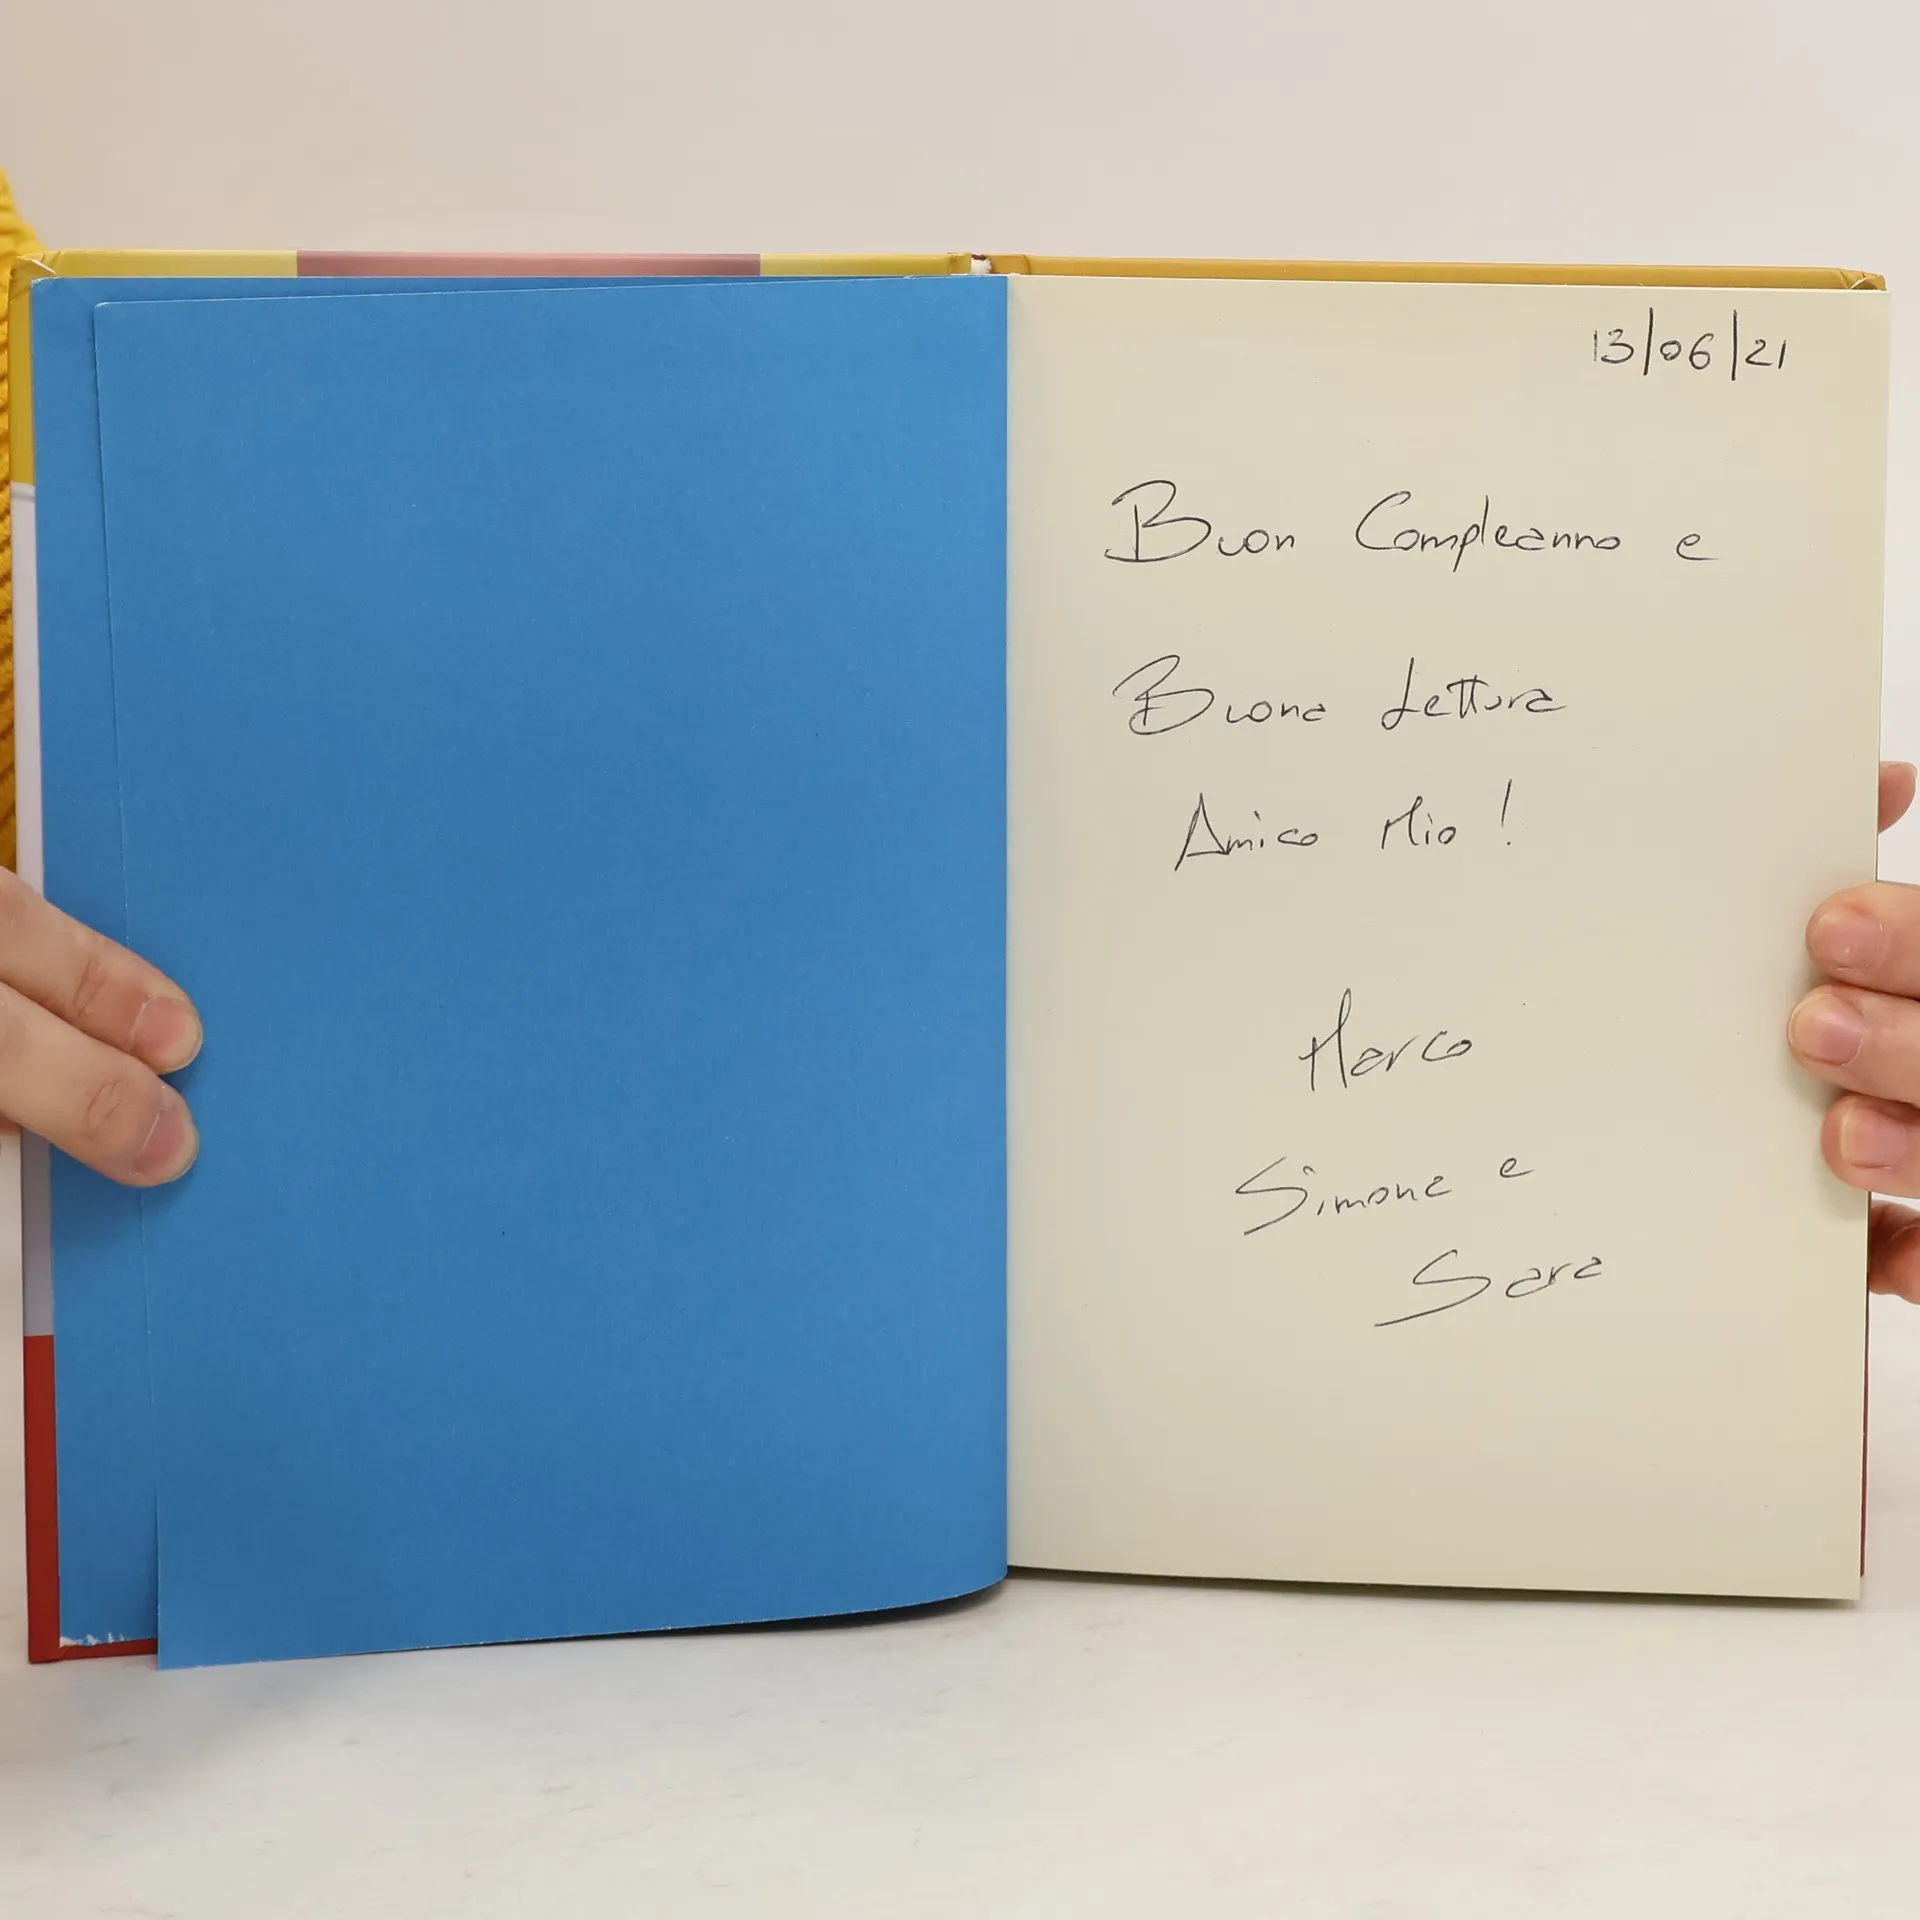 13/06/21
Buon Compleanno e
Buona Lettura
Amico Mio!
Marco
Simone e
Sara